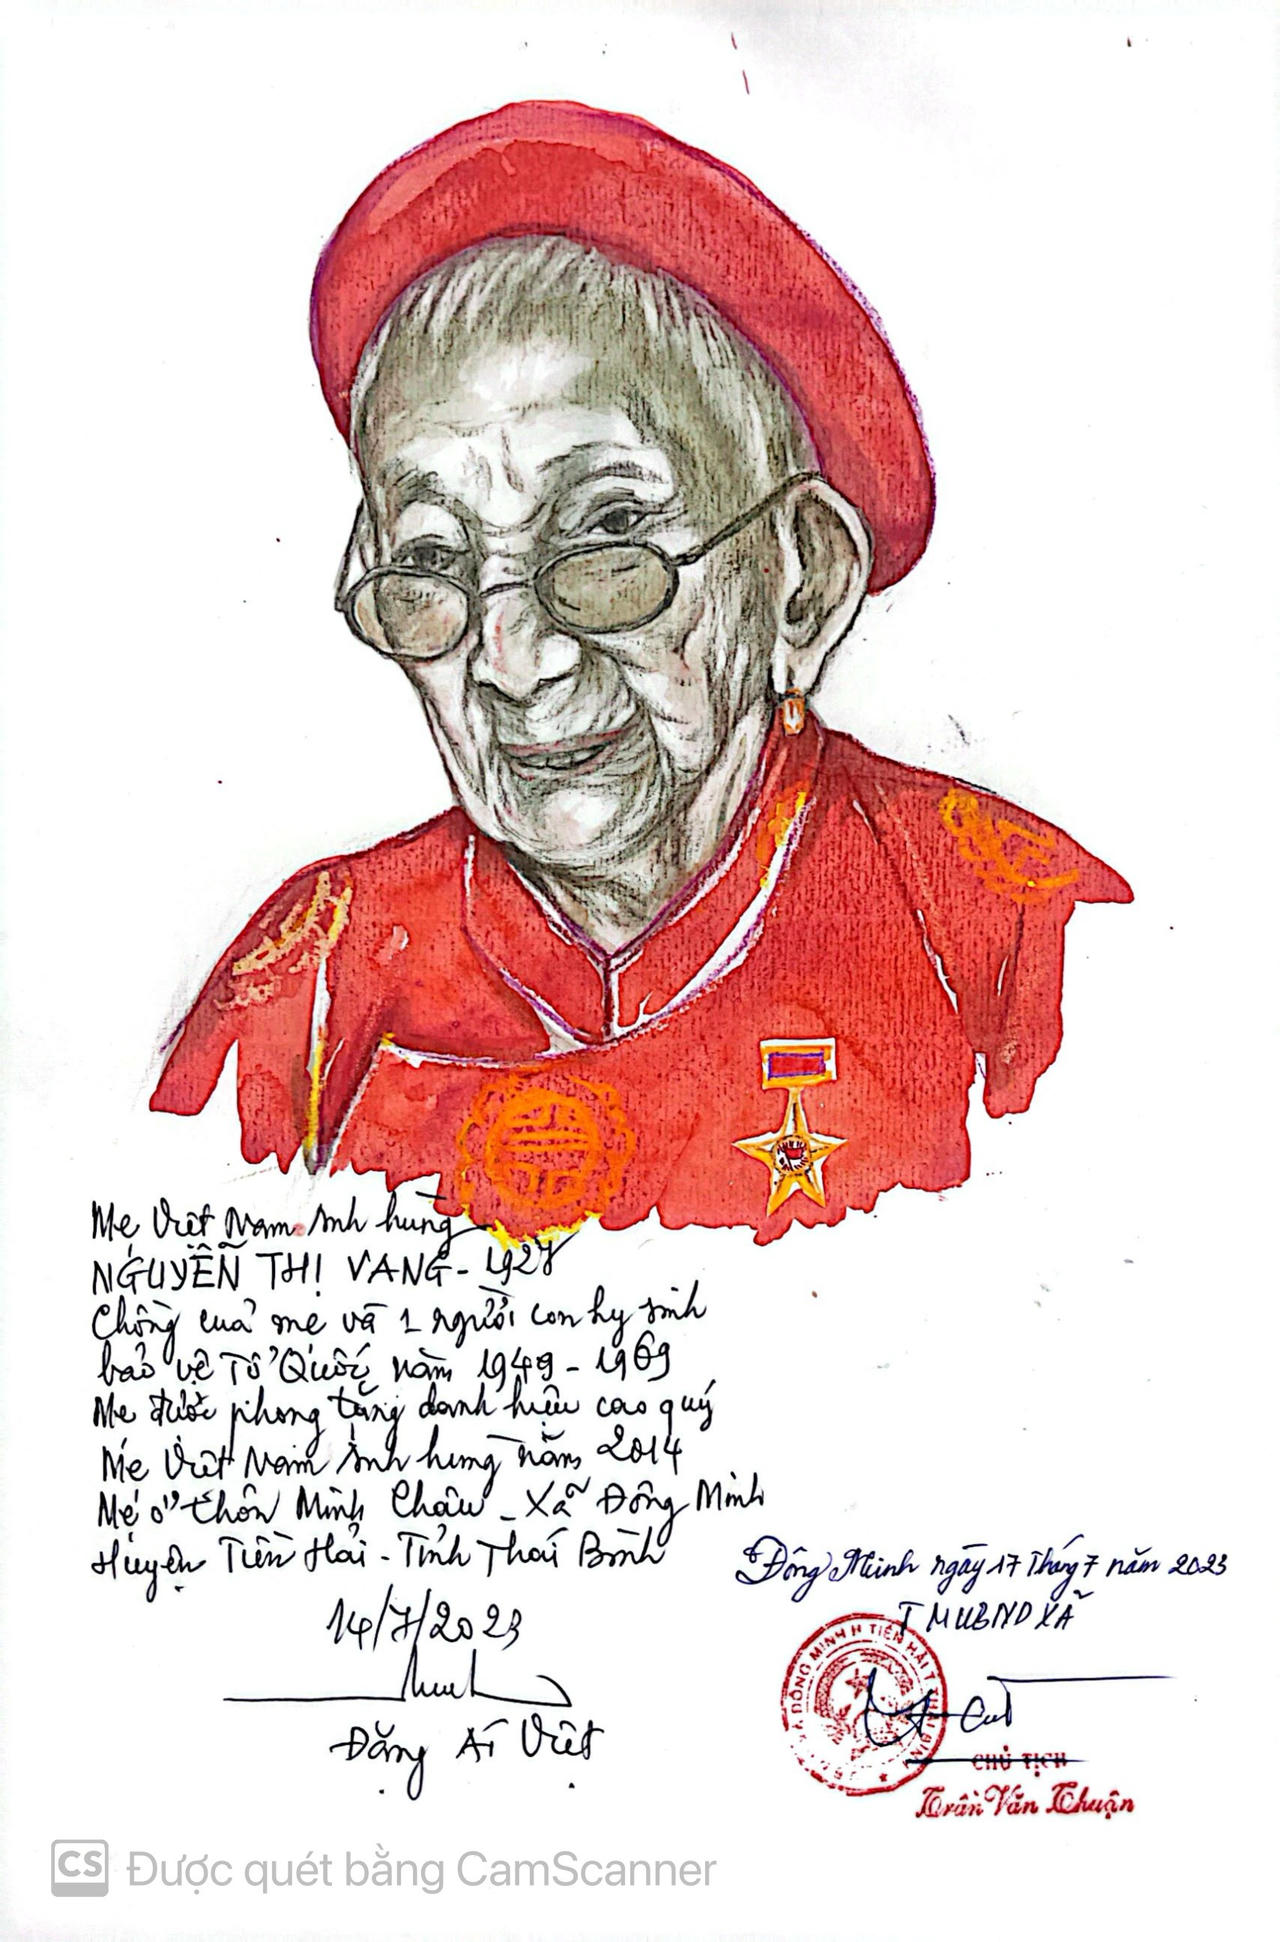 Mẹ Việt Nam Anh hùng
NGUYỄN THỊ VANG - 1927
Chồng của mẹ và 1 người con hy sinh
bảo vệ Tổ Quốc năm 1949 - 1969
Mẹ được phong tặng danh hiệu cao quý
Mẹ Việt Nam Anh hùng năm 2014
Mẹ ở thôn Minh Châu - Xã Đông Minh
Huyện Tiền Hải - Tỉnh Thái Bình
14/7/2023
Đặng Ái Việt
Đông Minh ngày 17 tháng 7 năm 2023
TM UBND XÃ
XÃ ĐÔNG MINH H TIỀN HẢI T THÁI BÌNH
CHỦ TỊCH
Trần Văn Thuận
CS Được quét bằng CamScanner